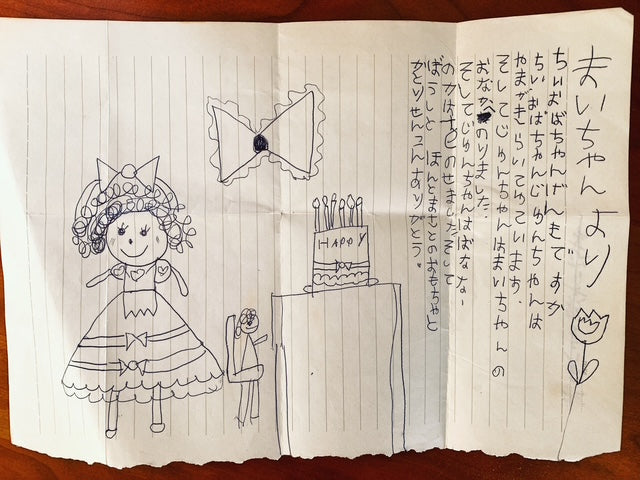 まいちゃんより
ちいおばちゃんげんきですか
ちいおばちゃんじゅんちゃんは
やまがきらいてゆています。
そしてじゅんちゃんはまいちゃんの
おなかのりました。
そしてじゅんちゃんはばなな
のかは のせましたそして
ぼうしと ほんとままごとのおもちゃと
かとりせんこんありがとう。
HAPPY